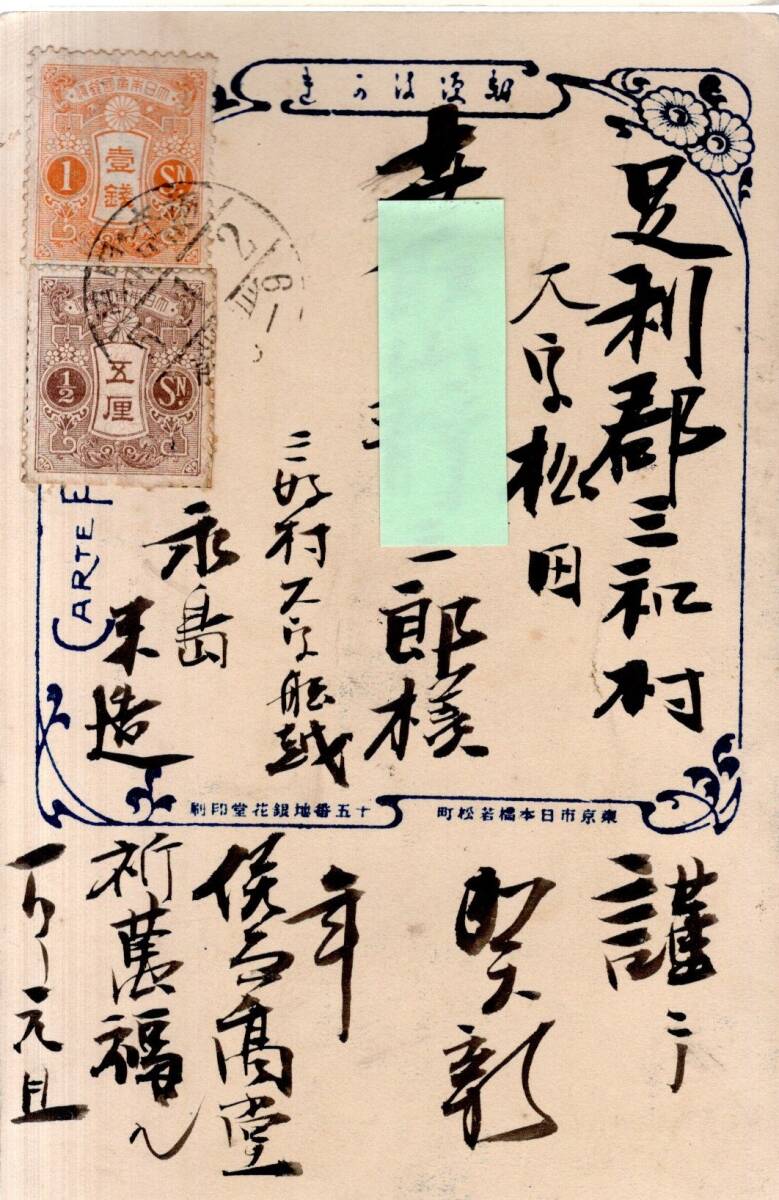 郵便はかき
大日本帝國郵便
壹錢
1 SN
大日本帝國郵便
五厘
1/2 SN
CARTE P
足利郡三和村
大字松田
一郎様
三好村大字船越
永島
末造
東京市日本橋若松町
十五番地銀花堂印刷
謹ニ
賀新
年
併而高堂
祈萬福
元旦